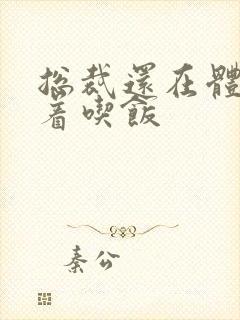 總裁還在體
着喫飯
秦公